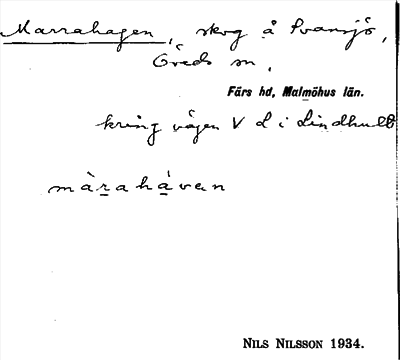 Marrahagen, skog å Svansjö,
Öveds sn.
Färs hd, Malmöhus län.
kring vägen V d i Lindhult
màrahávan
NILS NILSSON 1934.